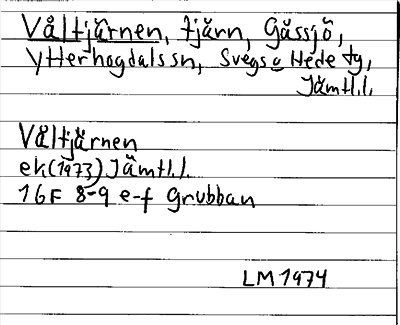 Våltjärnen, tjärn, Gåssjö,
Ytterhogdals sn, Svegs o Hede tg,
Jämtl.l.
Våltjärnen
ek(1973) Jämtl.l.
16F 8-9 e-f Grubban
LM 1974